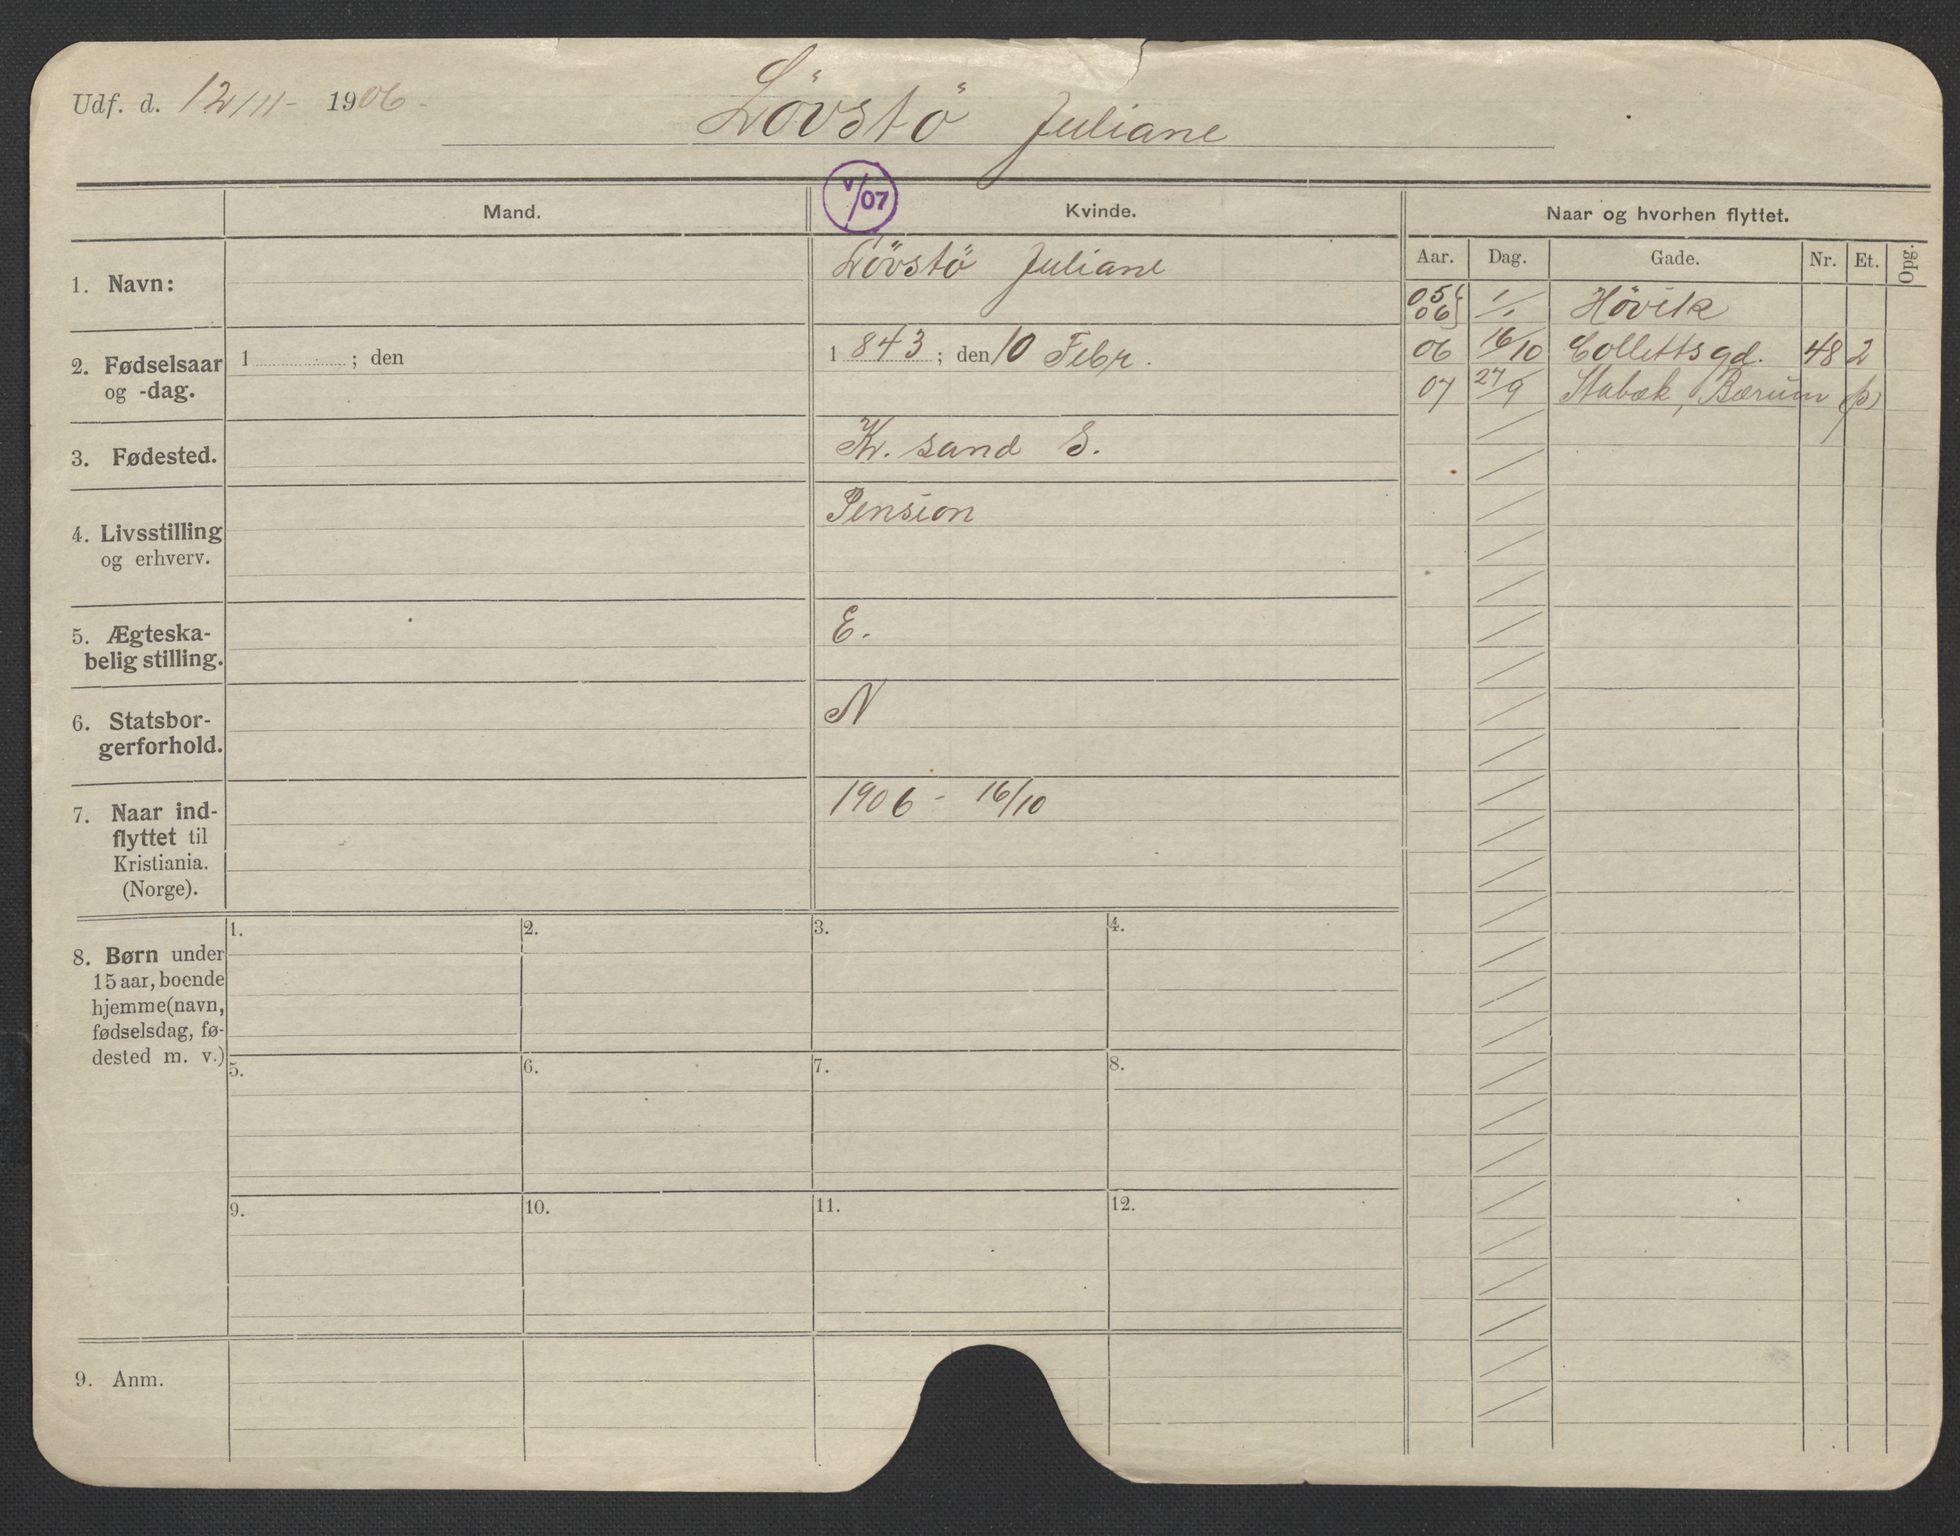 Udf. d. 12/11- 1906-
Lövstö Juliane
Mand.
V/07
Kvinde.
Naar og hvorhen flyttet.
Aar. Dag. Gade. Nr. Et. Opg.
1. Navn:
Lövstö Juliane
05 06 } 1/1 Hövik
06 16/10 Collettsgd. 48 2
07 27/9 Stabæk, Bærum (p)
2. Fødselsaar
og -dag.
1 ; den
1 843 ; den 10 Febr.
3. Fødested.
Kr. sand S.
4. Livsstilling
og erhverv.
Pension
5. Ægteska-
belig stilling.
E.
6. Statsbor-
gerforhold.
N
7. Naar ind-
flyttet til
Kristiania.
(Norge).
1906 - 16/10
8. Børn under
15 aar, boende
hjemme (navn,
fødselsdag, fø-
dested m. v.)
1. 2. 3. 4.
5. 6. 7. 8.
9. 10. 11. 12.
9. Anm.